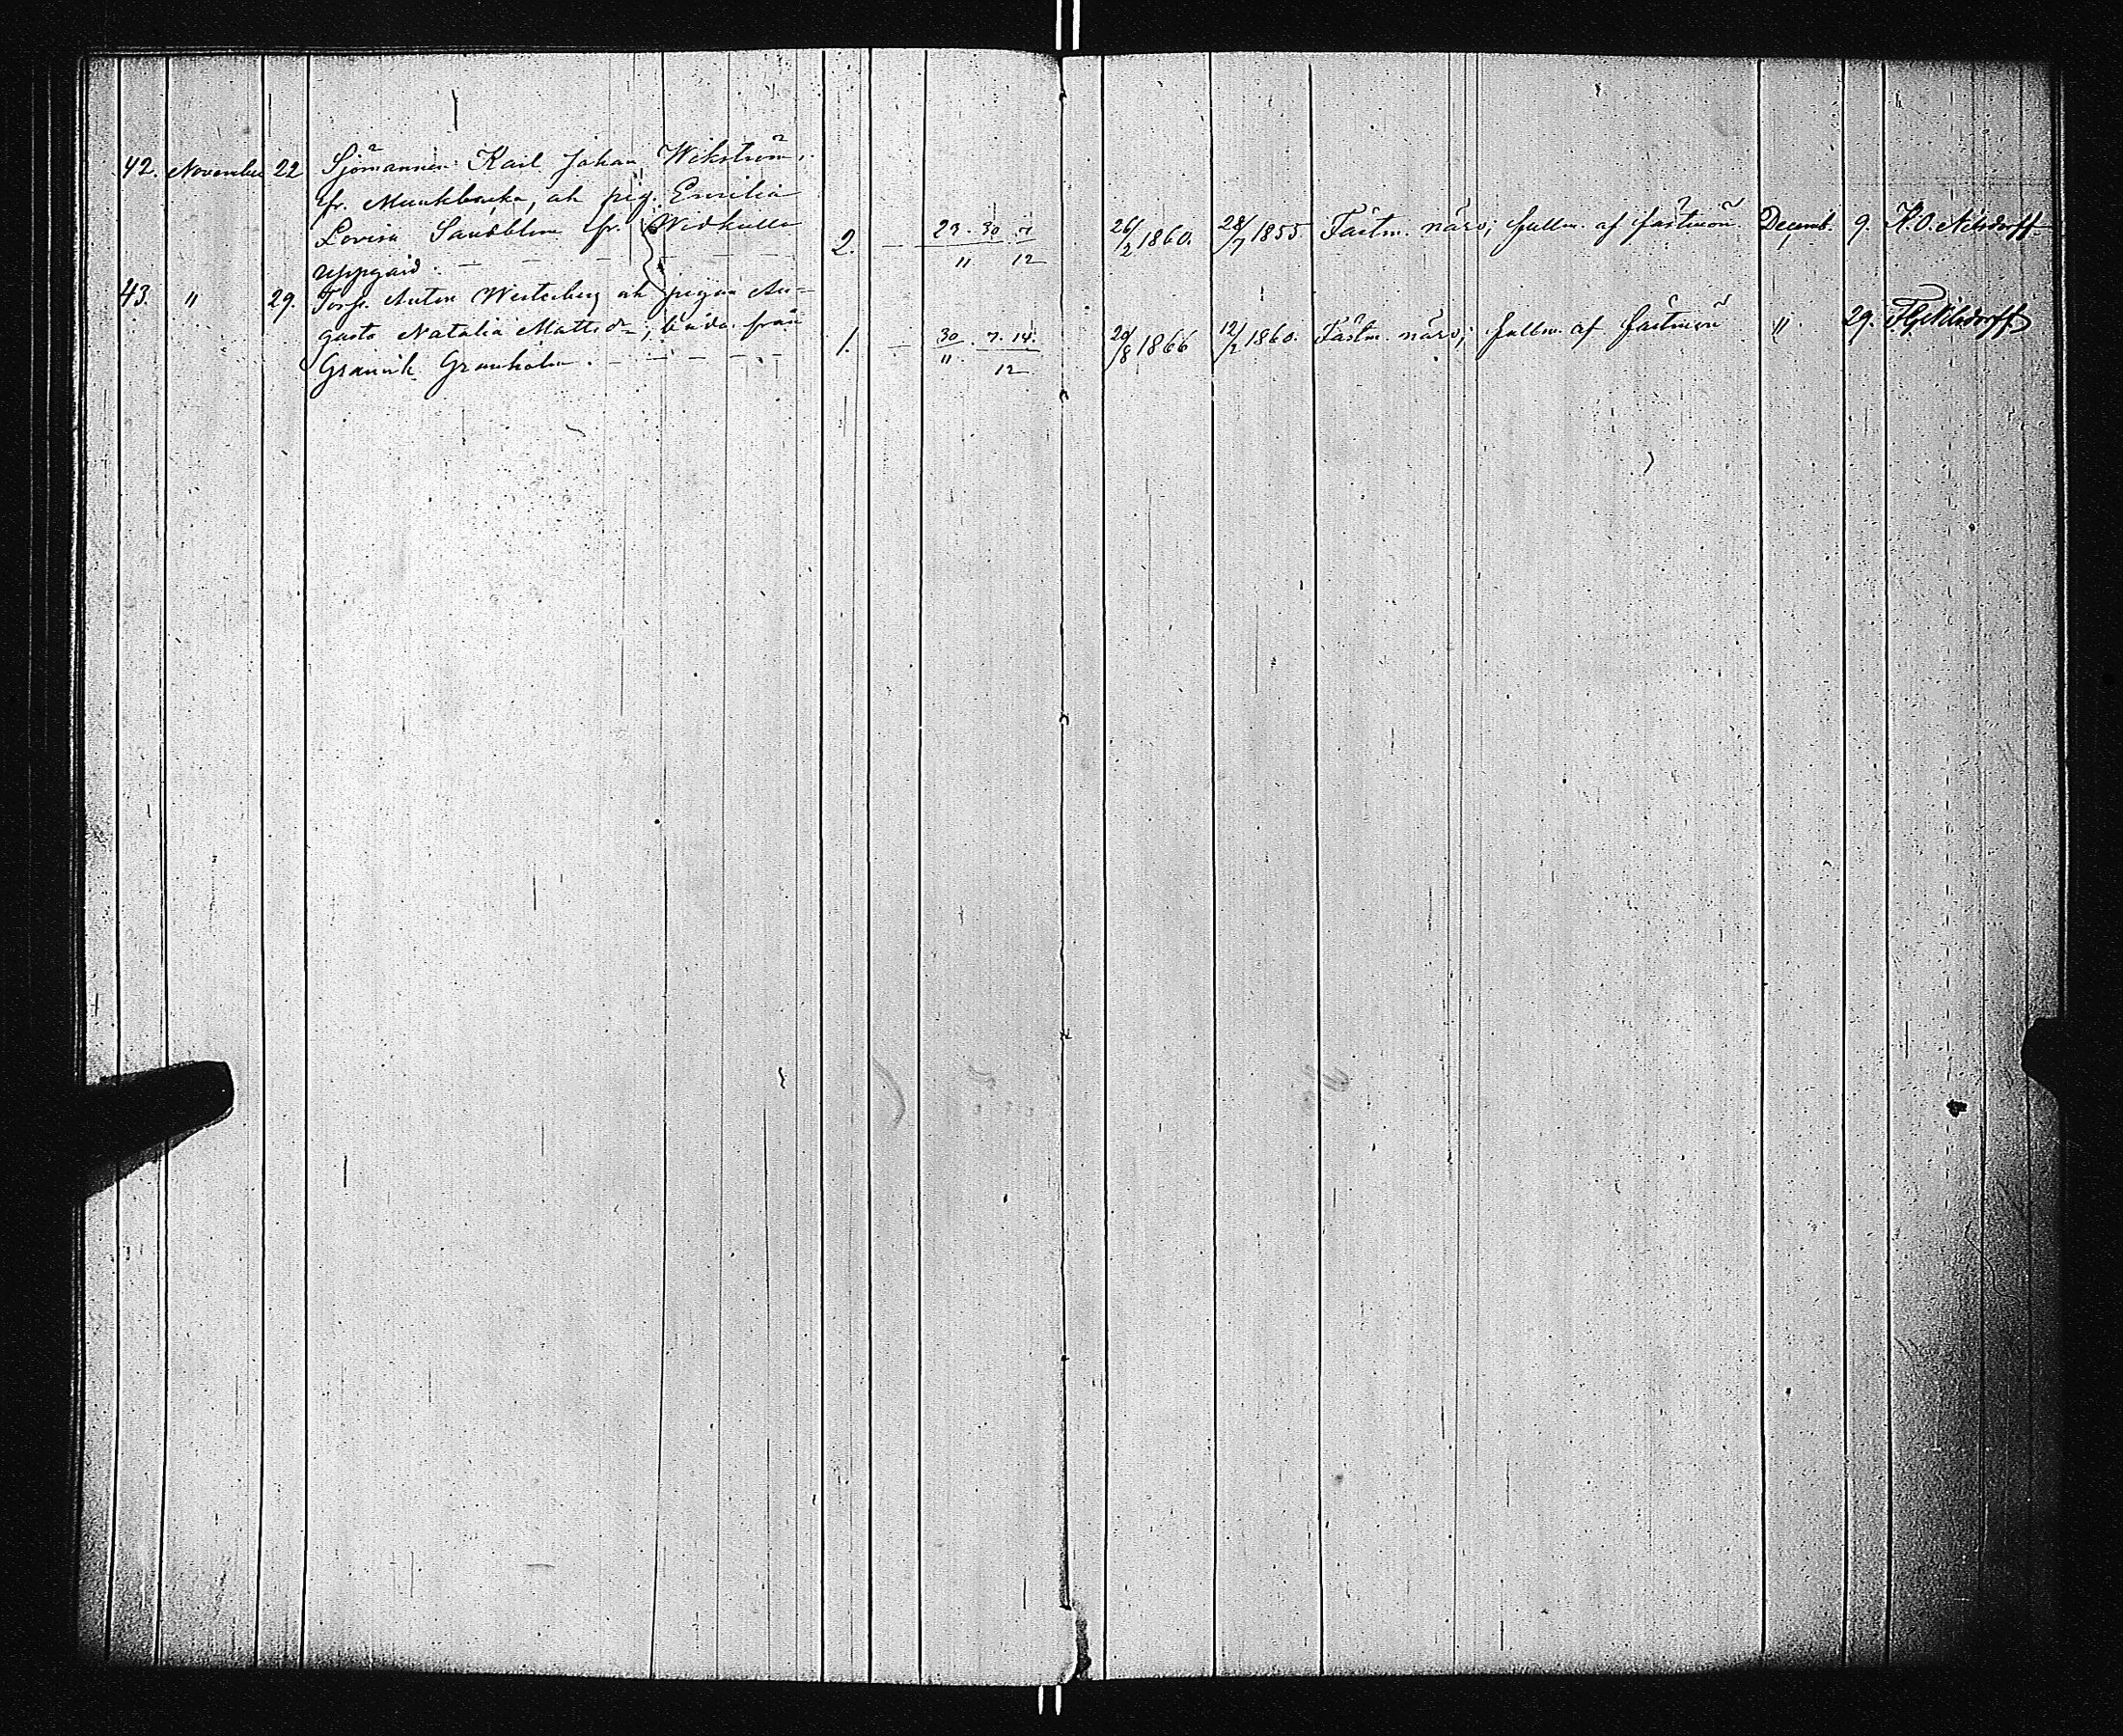 42. November 22 Sjömannen Karl Johan Wikström,
fr. Munkbouka, och pig. Emilia
Lovisa Sandblom fr. Widkulla 2. — 23. 30. 7 26/2 1860. 28/7 1855 Fästm. närv; fullm. af fästmön Decemb. 9. K. O. Nilsdorff
Uppgård. 11 12
43. " 29. Torp. Anton Westerberg och pigan Au-
gusta Natalia Mattsdr, båda från 1. — 30. 7. 14. 20/8 1866 12/2 1860. Fästm. närv; fullm. af fästmön " 29. Nilsdorff
Granvik Granholm. 11. 12